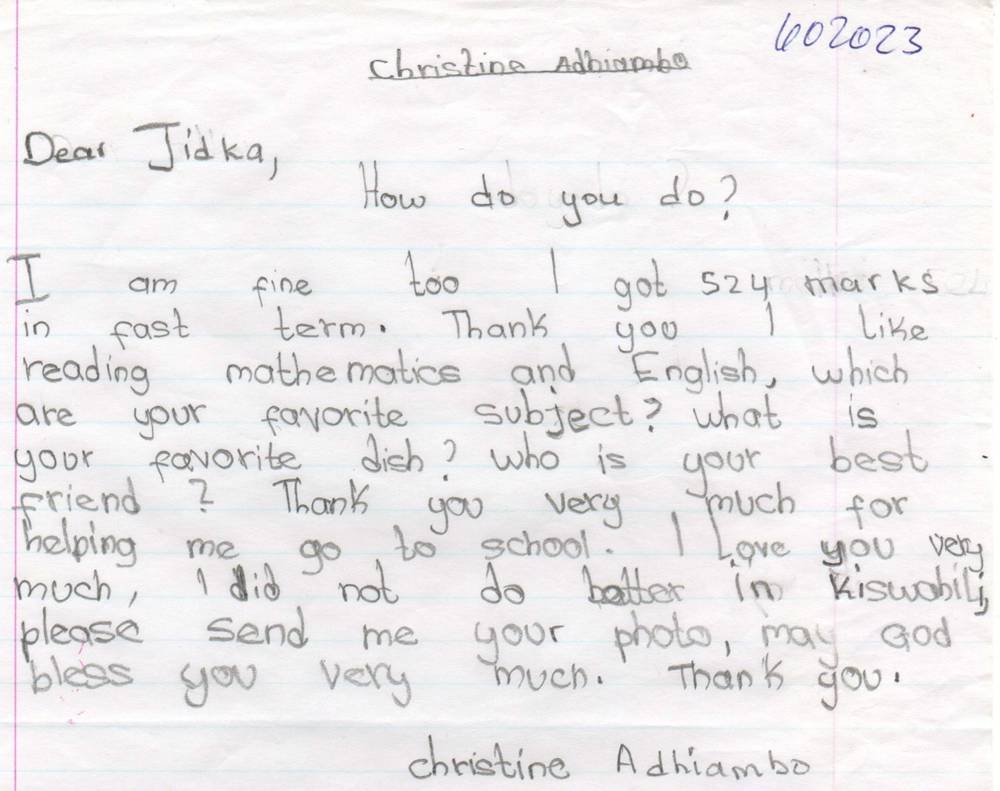 602023
Christine Adhiambo
Dear Jidka,
How do you do?
I am fine too I got 524 marks
in fast term. Thank you I like
reading mathematics and English, which
are your favorite subject? what is
your favorite dish? who is your best
friend? Thank you very much for
helping me go to school. I Love you very
much, I did not do better in Kiswahili,
please send me your photo, may God
bless you very much. Thank you.
christine Adhiambo